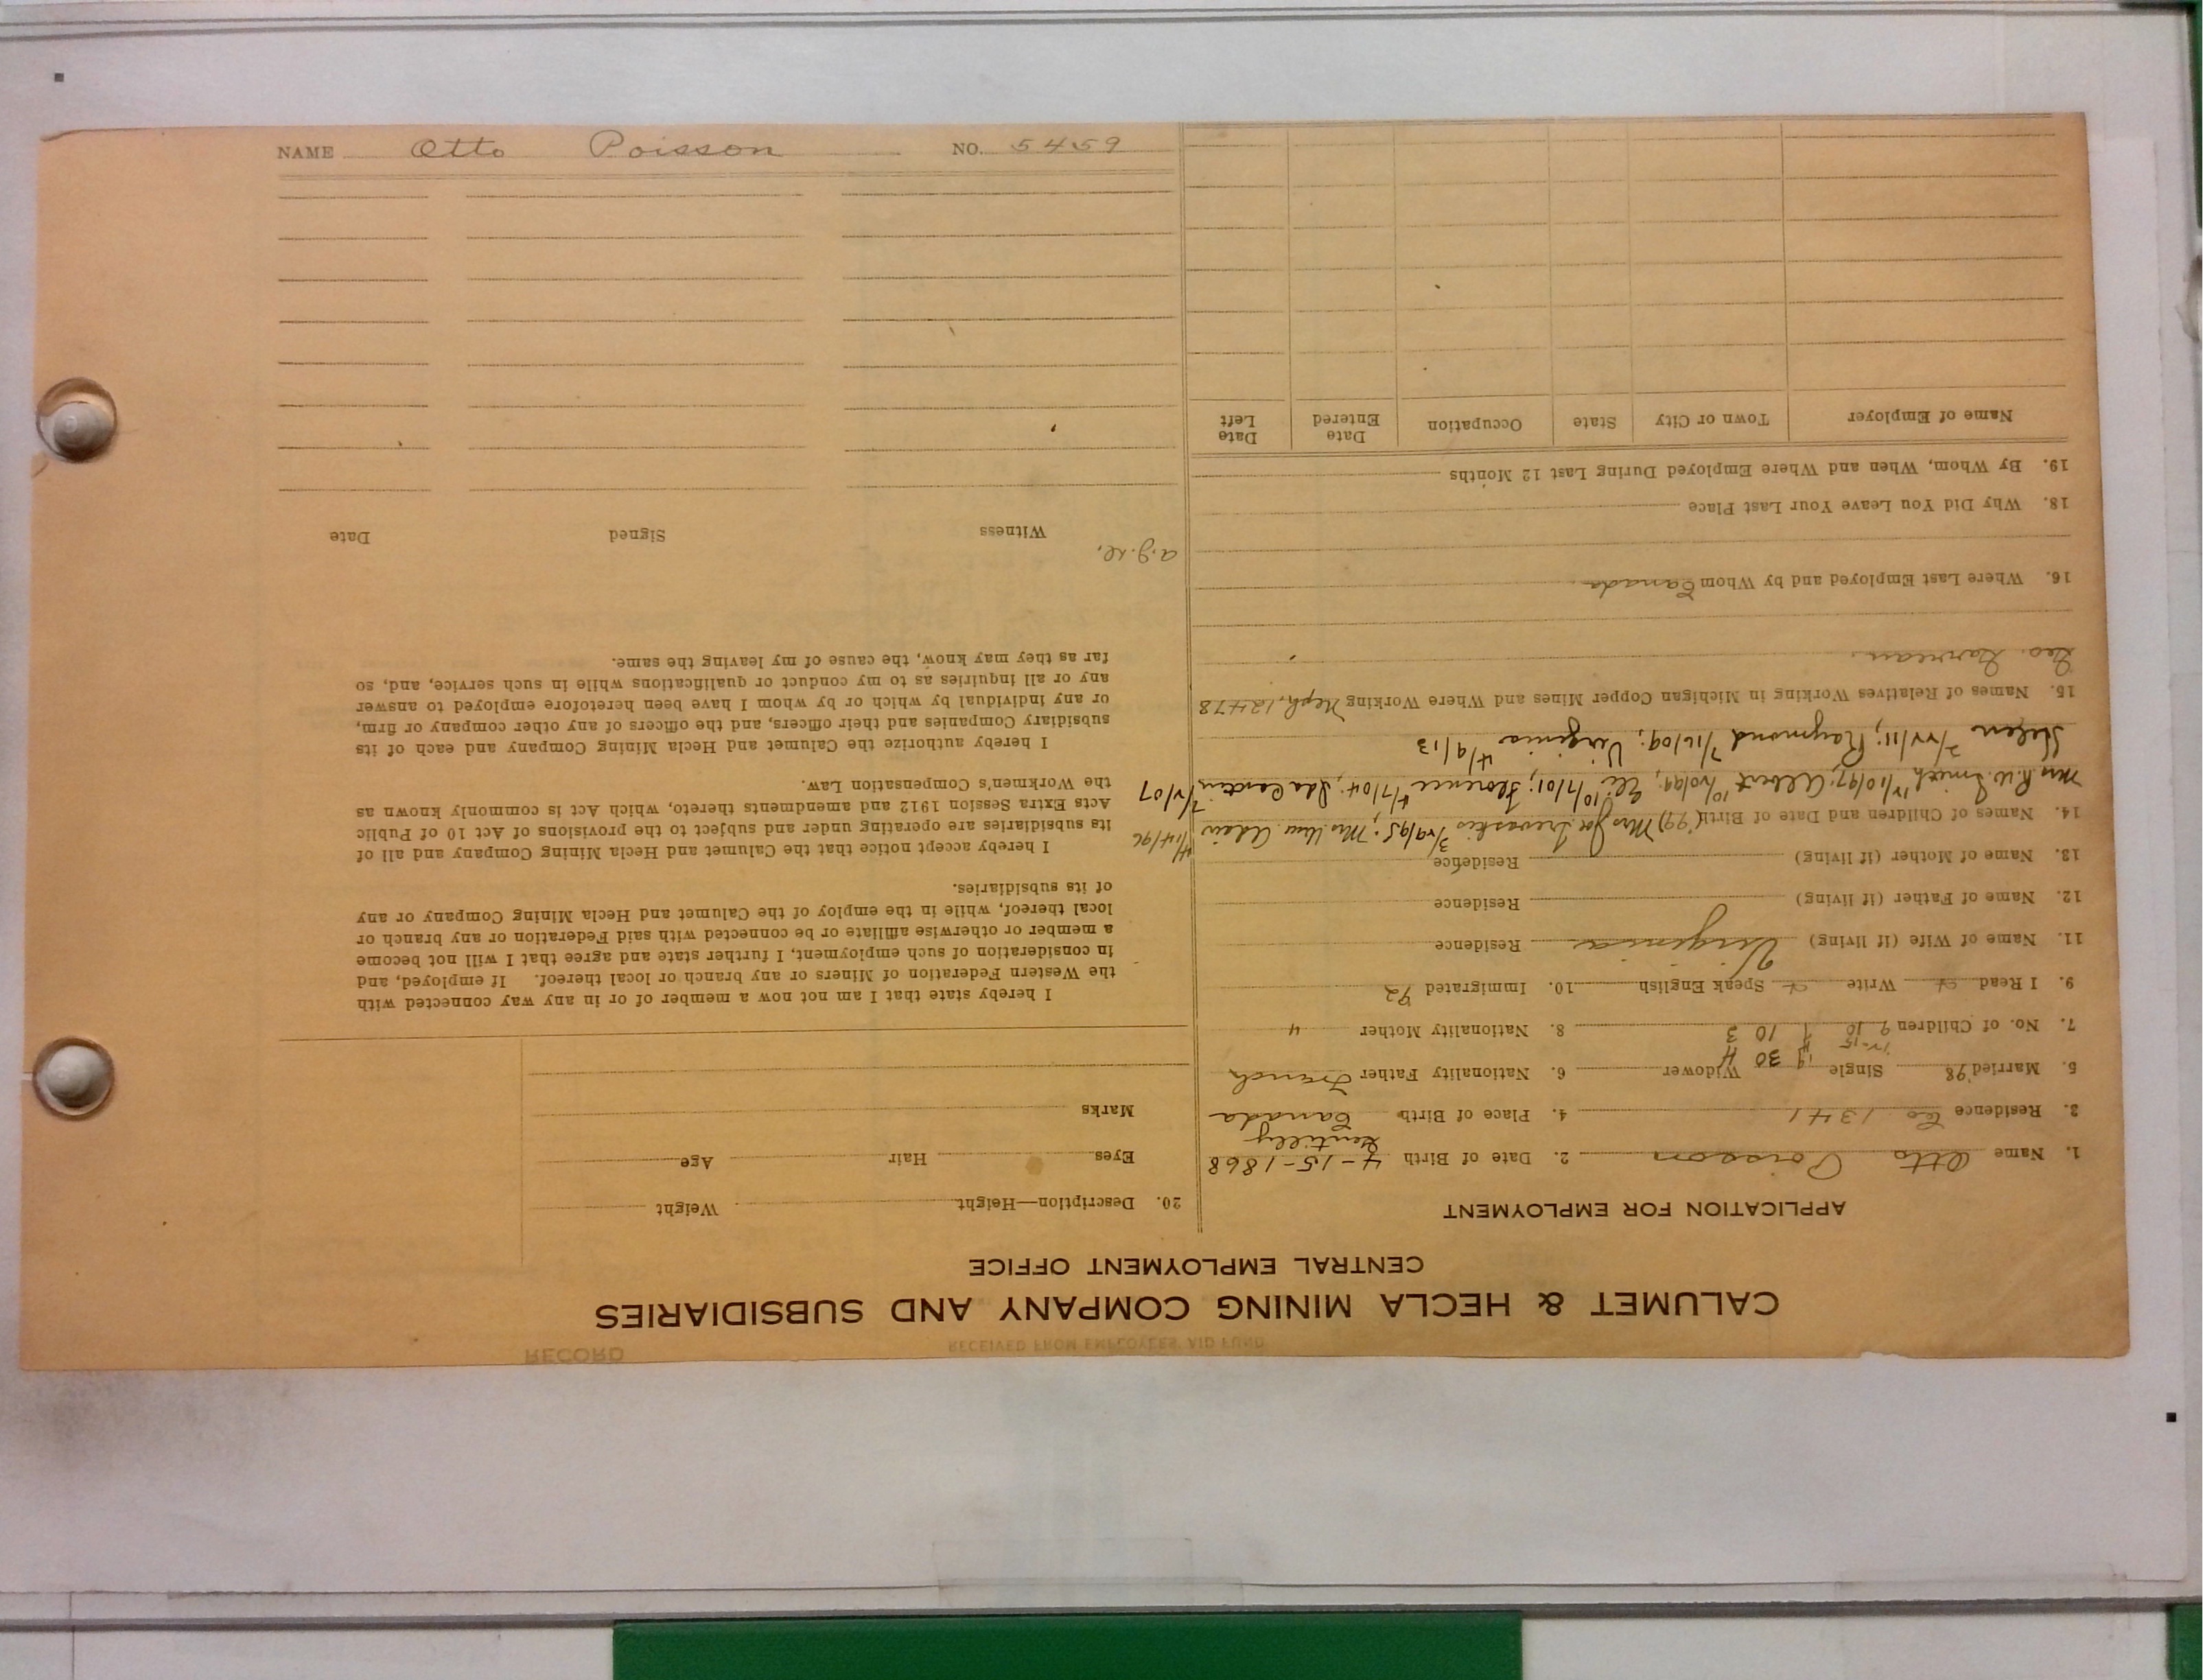 RECEIVED FROM EMPLOYEES' AID FUND
RECORD
CALUMET & HECLA MINING COMPANY AND SUBSIDIARIES
CENTRAL EMPLOYMENT OFFICE
APPLICATION FOR EMPLOYMENT
1. Name Otto Poisson 2. Date of Birth 4-15-1868
Gentilly
3. Residence Co 1341 4. Place of Birth Canada
5. Married '98 Single Widower 6. Nationality Father French
30 H
7. No. of Children 9 10 10 3 8. Nationality Mother "
9. I Read Write Speak English 10. Immigrated 92
11. Name of Wife (if living) Virginia Residence
12. Name of Father (if living) Residence
13. Name of Mother (if living) Residence
14. Names of Children and Date of Birth ('99) Mrs Joe Trevaskis 3/29/95; Mrs. Wm. Adair 4/14/96
Mrs. R.W. Smith 12/10/97; Albert 10/20/99; Eli 10/7/01; Florence 4/7/04; Ida 7/2/07
Helen 2/22/11; Raymond 7/16/09; Virginia 4/9/13
15. Names of Relatives Working in Michigan Copper Mines and Where Working Neph. 12478
Geo.
16. Where Last Employed and by Whom Canada
18. Why Did You Leave Your Last Place
19. By Whom, When and Where Employed During Last 12 Months
Name of Employer Town or City State Occupation Date Entered Date Left
20. Description—Height Weight
Eyes Hair Age
Marks
I hereby state that I am not now a member of or in any way connected with
the Western Federation of Miners or any branch or local thereof. If employed, and
in consideration of such employment, I further state and agree that I will not become
a member or otherwise affiliate or be connected with said Federation or any branch or
local thereof, while in the employ of the Calumet and Hecla Mining Company or any
of its subsidiaries.
I hereby accept notice that the Calumet and Hecla Mining Company and all of
its subsidiaries are operating under and subject to the provisions of Act 10 of Public
Acts Extra Session 1912 and amendments thereto, which Act is commonly known as
the Workmen's Compensation Law.
I hereby authorize the Calumet and Hecla Mining Company and each of its
subsidiary Companies and their officers, and the officers of any other company or firm,
or any individual by which or by whom I have been heretofore employed to answer
any or all inquiries as to my conduct or qualifications while in such service, and, so
far as they may know, the cause of my leaving the same.
Witness Signed Date
NAME Otto Poisson NO. 5459